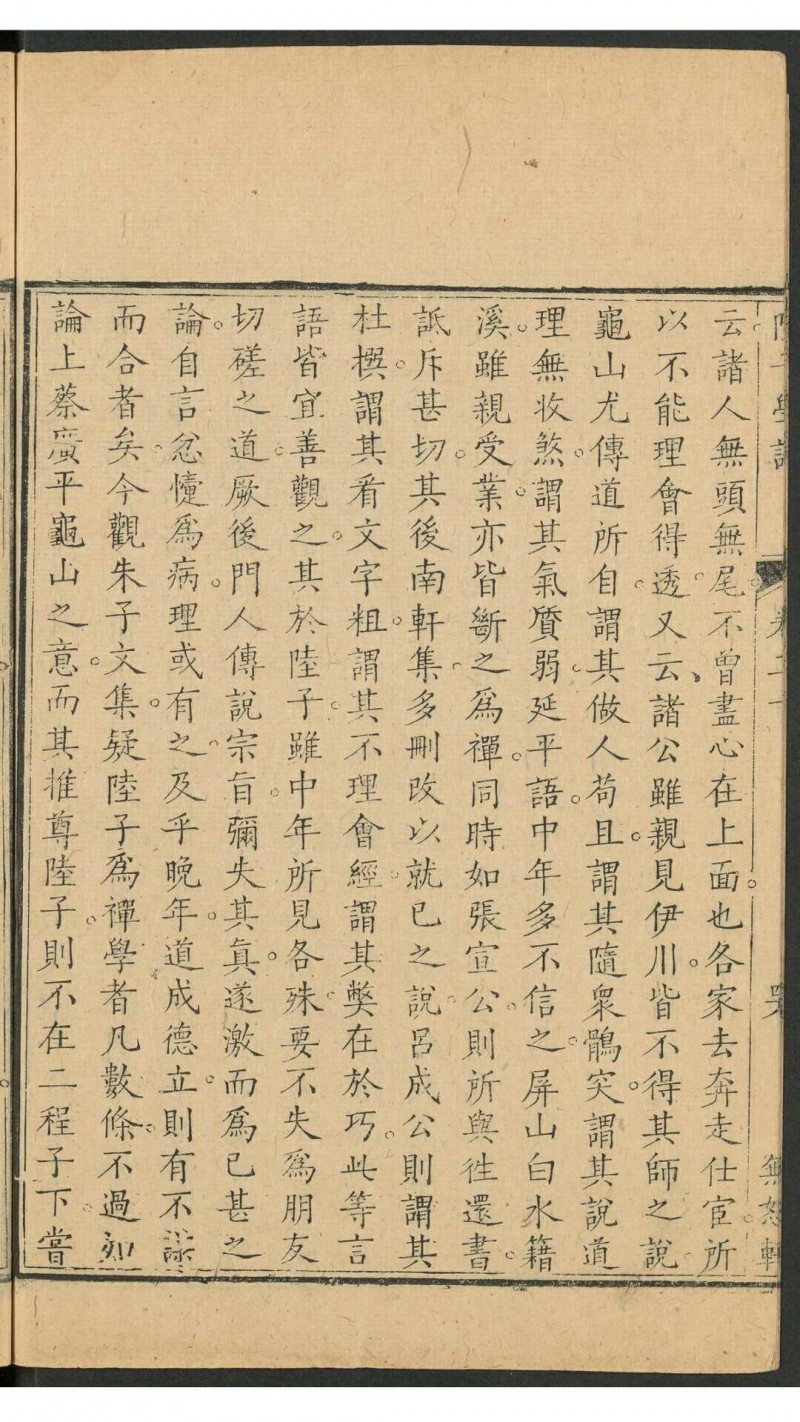 陸子學譜 卷二十 無怒軒
云諸人無頭無尾不曾盡心在上面也各家去奔走仕宦所
以不能理會得透又云諸公雖親見伊川皆不得其師之說
龜山尤傳道所自謂其做人苟且謂其隨衆鶻突謂其說道
理無收煞謂其氣質弱延平語中年多不信之屏山白水籍
溪雖親受業亦皆斷之爲禪同時如張宣公則所與往還書
詆斥甚切其後南軒集多刪改以就已之說呂成公則謂其
杜撰謂其看文字粗謂其不理會經謂其獘在於巧此等言
語皆宜善觀之其於陸子雖中年所見各殊要不失爲朋友
切磋之道厥後門人傳說宗旨彌失其真遂激而爲已甚之
論自言忿懥爲病理或有之及乎晚年道成德立則有不謀
而合者矣今觀朱子文集疑陸子爲禪學者凡數條不過如
論上蔡廣平龜山之意而其推尊陸子則不在二程子下嘗